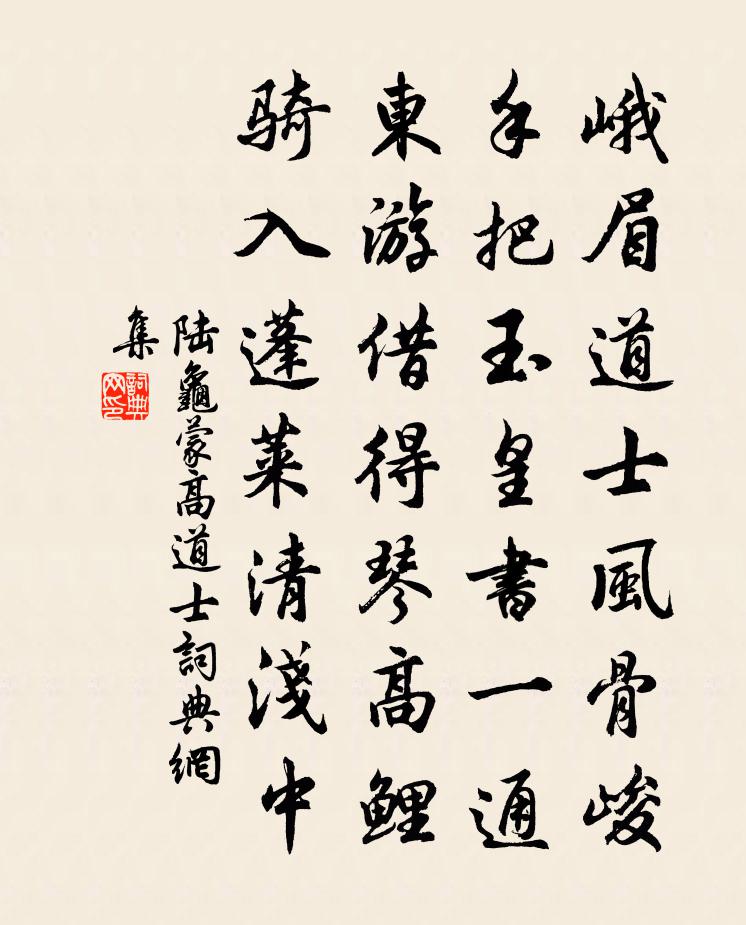 峨眉道士風骨峻
手把玉皇書一通
東游借得琴高鯉
騎入蓬萊清淺中
陆龜蒙高道士詞典網
集
詞典
网印